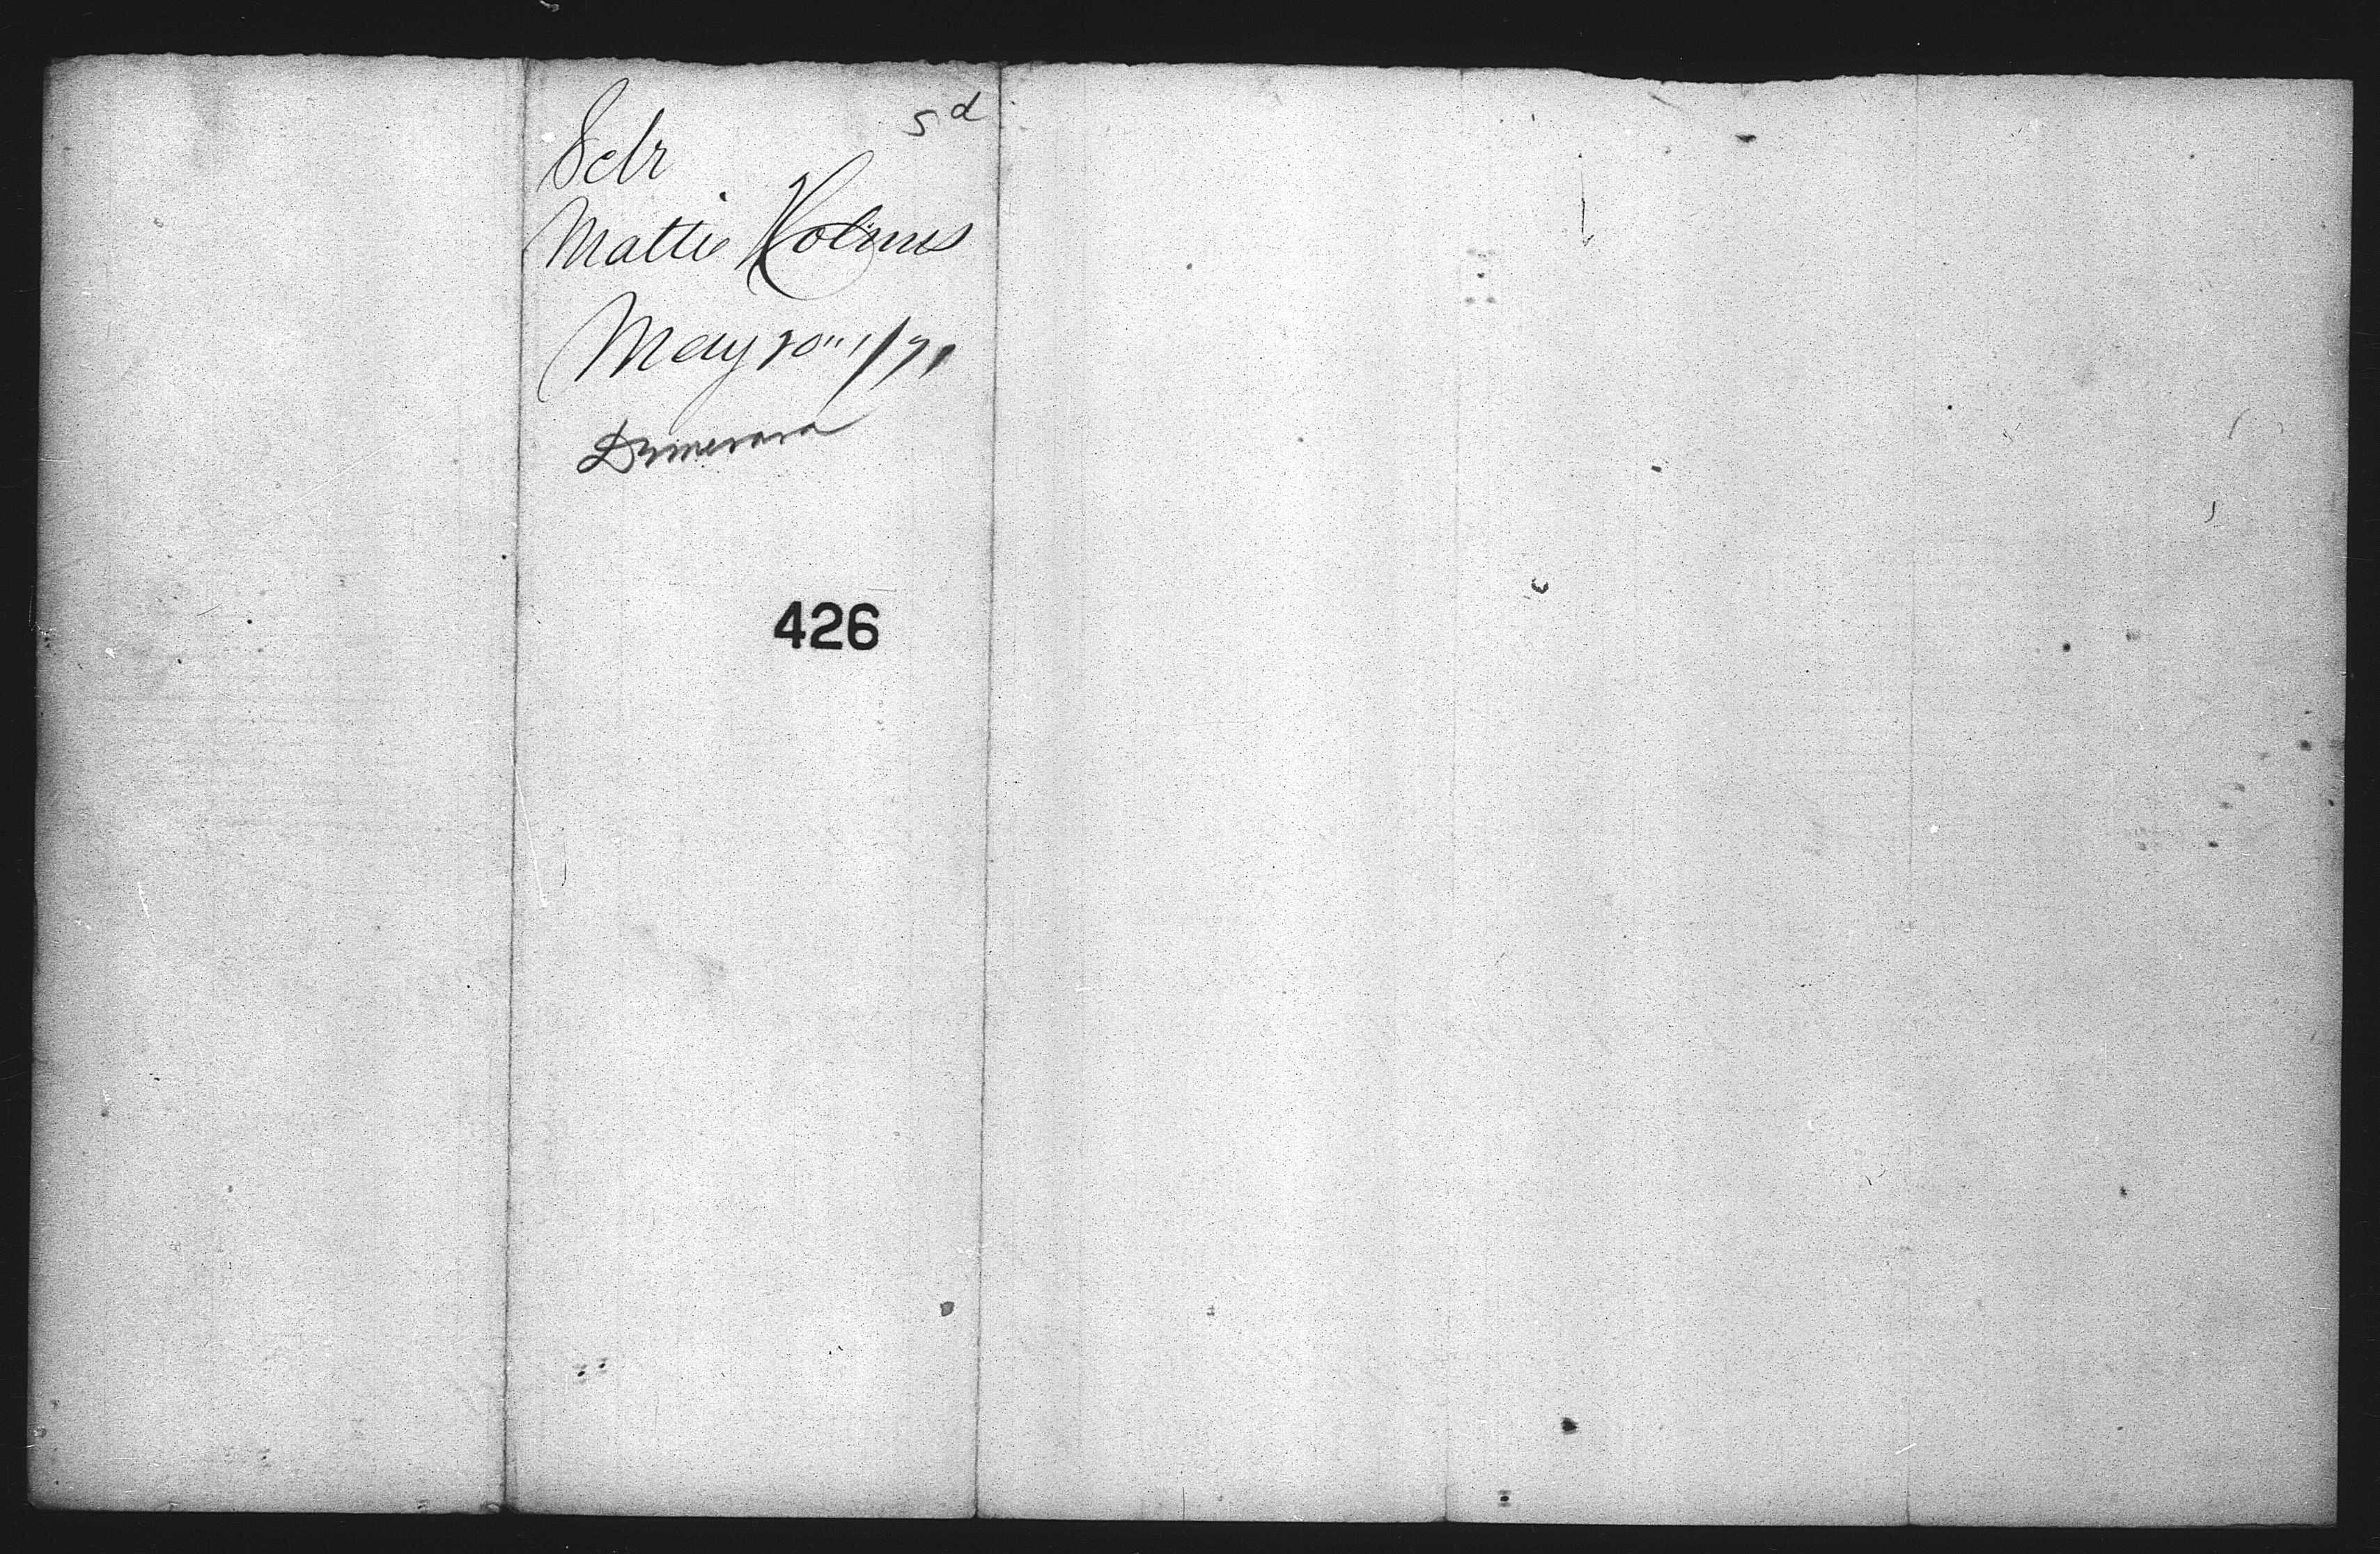 5d
Schr
Mattie Holmes
May 20" 1/71
Demerara
426